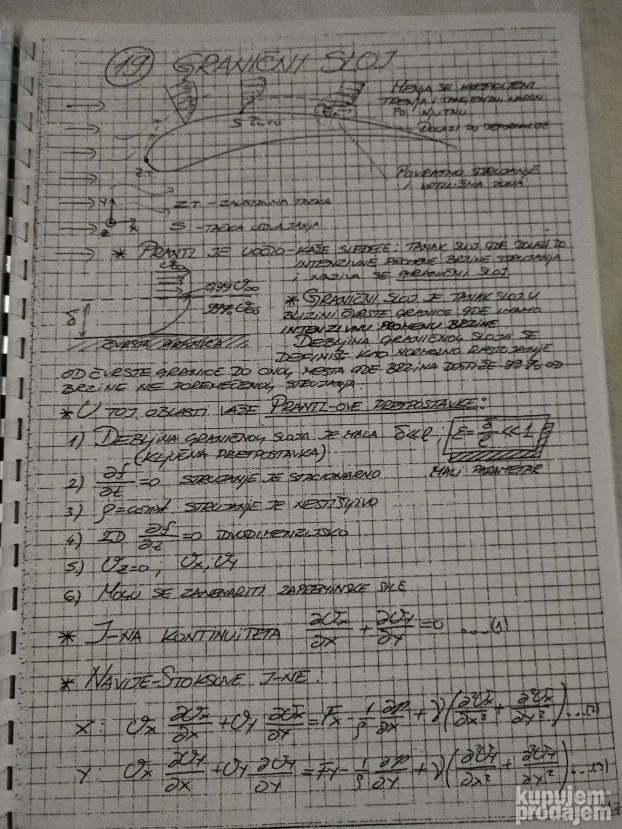 19 GRANIČNI SLOJ
MENJA SE KOEFICIJENT
TRENJA I TANGENTNI NAPON
PO NJUTNU
DOLAZI DO DEFORMACIJE
S
Z.T.
POVRATNO STRUJANJE
I VRTLOŽNA ZONA
Y
X
Z
Z.T. - ZAUSTAVNA TAČKA
S - TAČKA ODVAJANJA
* PRANTL JE UOČIO - KAŽE SLEDEĆE: TANAK SLOJ GDE DOLAZI DO
INTENZIVNE PROMENE BRZINE STRUJANJA
I NAZIVA SE GRANIČNI SLOJ
U∞
0,99U∞
δ
ČVRSTA GRANICA
* GRANIČNI SLOJ JE TANAK SLOJ U
BLIZINI ČVRSTE GRANICE GDE IMAMO
INTENZIVNU PROMENU BRZINE
DEBLJINA GRANIČNOG SLOJA SE
DEFINIŠE KAO NORMALNO RASTOJANJE
OD ČVRSTE GRANICE DO ONOG MESTA GDE BRZINA DOSTIŽE 99% OD
BRZINE NE POREMEĆENOG STRUJANJA
* U TOJ OBLASTI VAŽE PRANTL-OVE PRETPOSTAVKE:
1) DEBLJINA GRANIČNOG SLOJA JE MALA δ≪ℓ; ε=δ/ℓ≪1
(KLJUČNA PRETPOSTAVKA)
MALI PARAMETAR
2) ∂f/∂t=0 STRUJANJE JE STACIONARNO
3) ρ=const. STRUJANJE JE NESTIŠLJIVO
4) 2D ∂f/∂z=0 DVODIMENZIJSKO
5) Uz=0; Ux, Uy
6) MOGU SE ZANEMARITI ZAPREMINSKE SILE
* J-NA KONTINUITETA ∂Ux/∂x + ∂Uy/∂y = 0 ....(1)
* NAVIJE-STOKSOVE J-NE:
X: Ux ∂Ux/∂x + Uy ∂Ux/∂y = Fx - 1/ρ ∂p/∂x + ν(∂²Ux/∂x² + ∂²Ux/∂y²)...(2)
Y: Ux ∂Uy/∂x + Uy ∂Uy/∂y = Fy - 1/ρ ∂p/∂y + ν(∂²Uy/∂x² + ∂²Uy/∂y²)...(3)
kupujem
prodajem